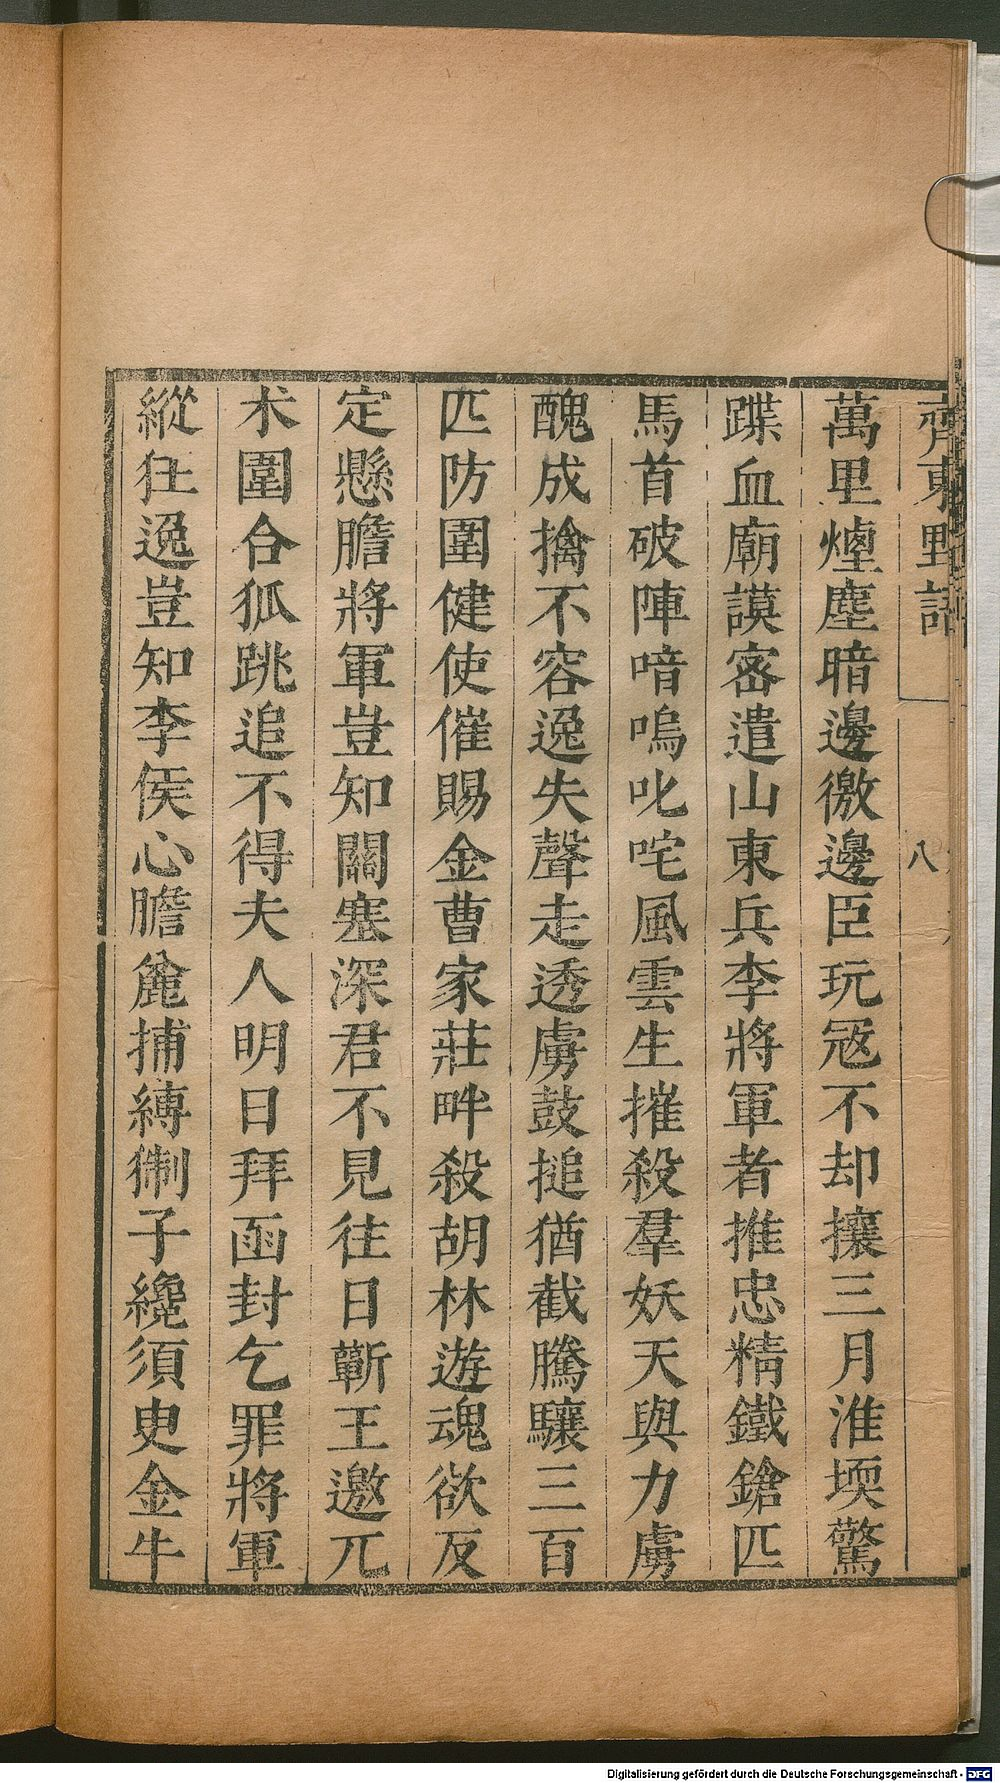 齊東野語
八
萬里煙塵暗邊徼邊臣玩寇不却攘三月淮堧驚
蹀血廟謨密遣山東兵李將軍者推忠精鐵鎗匹
馬首破陣喑嗚叱咤風雲生摧殺羣妖天與力虜
醜成擒不容逸失聲走透虜鼓搥猶截騰驤三百
匹防圍健使催賜金曹家莊畔殺胡林遊魂欲反
定懸膽將軍豈知關塞深君不見往日蘄王邀兀
术圍合狐跳追不得夫人明日拜函封乞罪將軍
縱狂逸豈知李侯心膽麄捕縛猘子纔須臾金牛
Digitalisierung gefördert durch die Deutsche Forschungsgemeinschaft - DFG